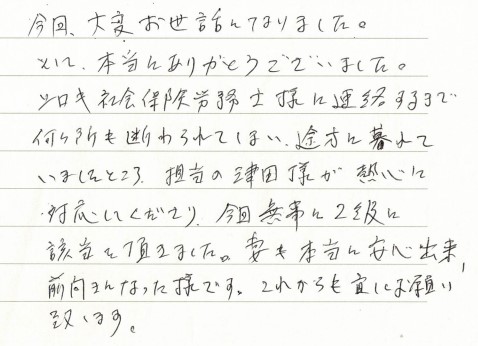 今回、大変お世話になりました。
本当にありがとうございました。
社会保険労務士様に連絡するまで
何ヶ所も断わられてしまい、途方に暮れて
いましたところ、担当の津田様が熱心に
対応してくださり、今回無事に2級に
該当て頂きました。妻も本当に安心出来、
前向きになった様です。これからも宜しくお願い
致します。